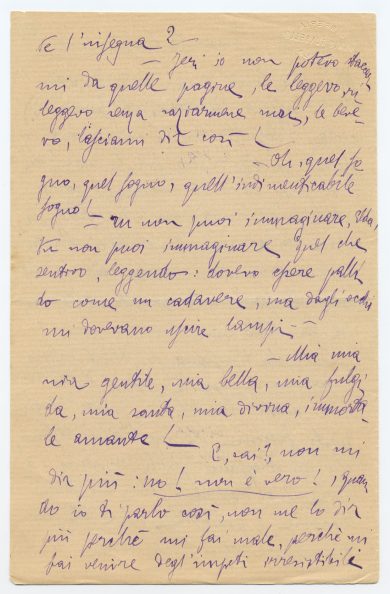 Te l'insegna?
— Jeri io non potevo staccar
mi da quelle pagine, le leggevo, ri
leggevo senza saziarmene mai, le beve
vo, lasciami dir così!
— Oh, quel so
gno, quel sogno, quell'indimenticabile
sogno! — tu non puoi immaginare,
tu non puoi immaginare quel che
sentivo, leggendo: dovevo essere palli
do come un cadavere, ma dagli occhi
mi dovevano uscire lampi —
— Mia mia
mia gentile, mia bella, mia fulgi
da, mia santa, mia divina, immorta
le amante!
E, sai?, non mi
dir più: no! non è vero!, quan
do io ti parlo così, non me lo dir
più perchè mi fai male, perchè mi
fai venire degl'impeti irresistibili